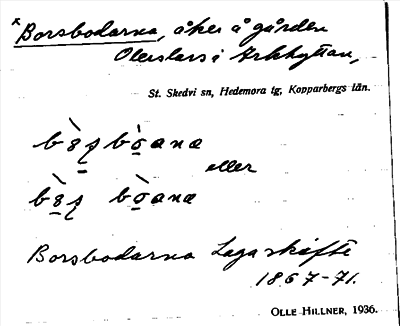 *Borsbodarna, åker å gården
Olerslars i Arkhyttan,
St. Skedvi sn, Hedemora tg, Kopparbergs län.
eller
Borsbodarna Laga skifte
1867-71.
OLLE HILLNER, 1936.